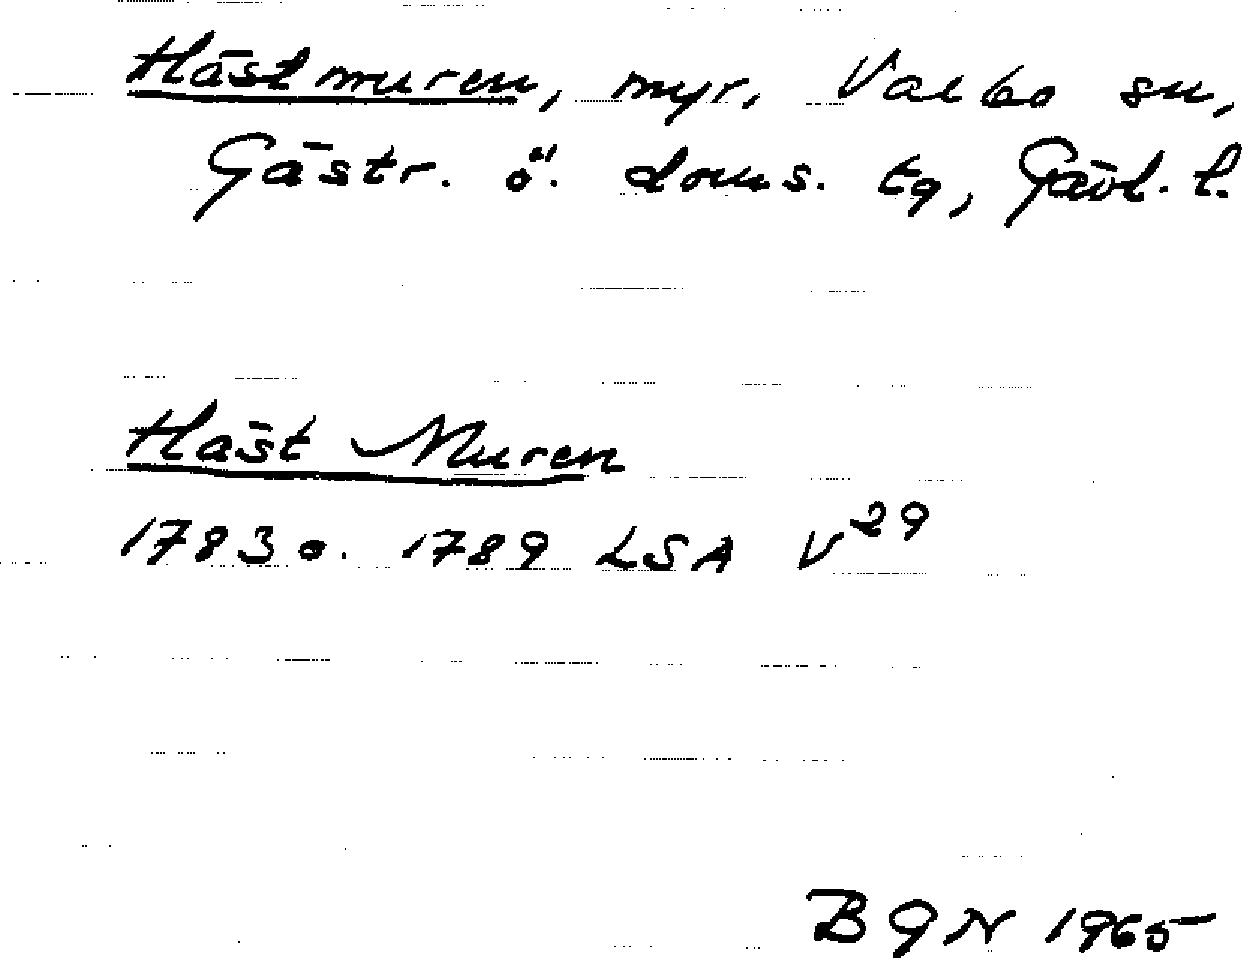 Hästmuren, myr, Valbo sn,
Gästr. ö. doms. tg, Gävl. l.
Häst Muren
1783 o. 1789 LSA V29
BGN 1965